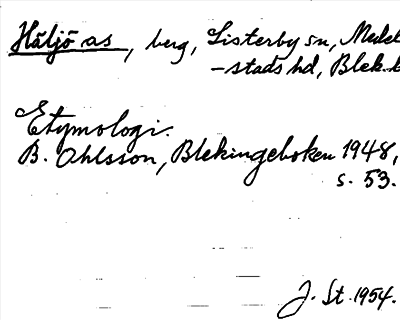 Häljö as, berg, Listerby sn, Medel
-stads hd, Blek. l
Etymologi.
B. Ohlsson, Blekingeboken 1948,
s. 53.
J. St. 1954.